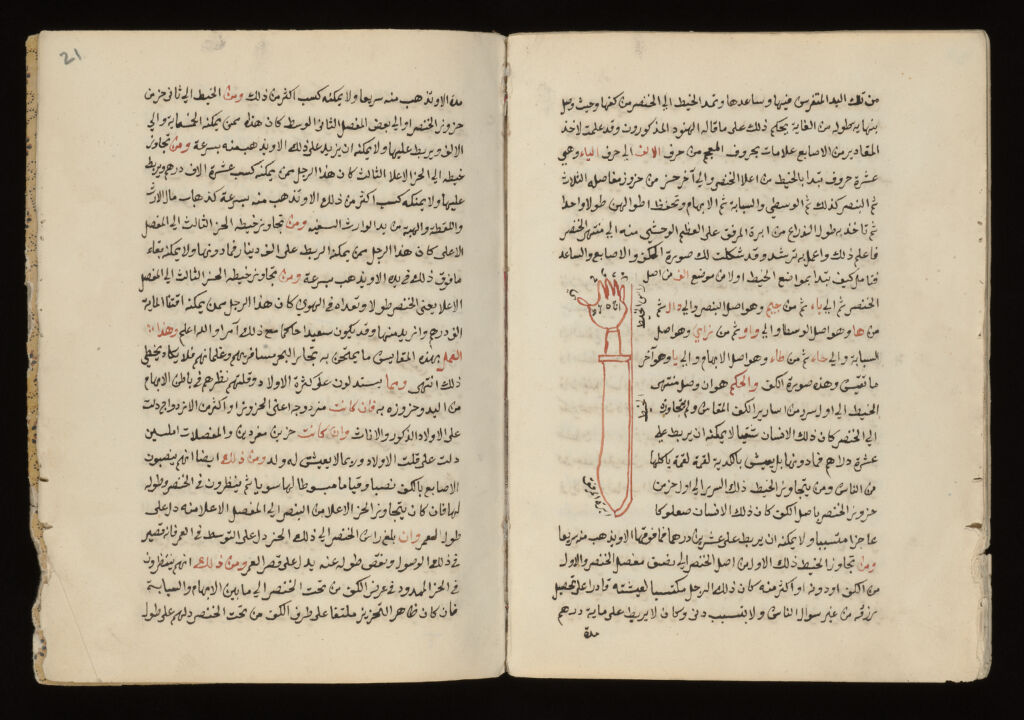 من تلك اليد المتفرس فيها وساعدها وتمد الخيط الى الخنصر من كفها وحيث وصل
بنهايه بطوله من الغاية يحكم ذلك على ما قاله الهنود المذكورون وقد علمت لاخذ
المقادير من الاصابع علامات بحروف المعجم من حرف الالف الى حرف الياء وهي
عشرة حروف تبدا بالخيط من اعلا الخنصر والى آخر جز من حزوز مفاصله الثلاث
ثم البنصر كذلك ثم الوسطى والسبابة ثم الابهام وتحفظ اطوالهن طولا واحدا
ثم تاخذ به طول الذراع من ابرة المرفق على العظم الوحشي منه الى منتهى الخنصر
فاعلم ذلك واعمل به ترشد وقد شكلت لك صورة الكف والاصابع والساعد
فتامل كيف تبدا بمواضع الخيط اولا من موضع الف من اصل
الخنصر ثم الى باء ثم من جيم وهو اصل البنصر والى دال ثم
من ها وهو اصل الوسطا والى واو ثم من زاي وهو اصل
السبابة والى حاء ثم من طاء وهو اصل الابهام والى يا وهو آخر
ما تقيس وهذه صورة الكف والحكم هو ان وصل منتهى
الخيط الى اول سرر من اسارير الكف المقاس ولم يتجاوزه
الى الخنصر كان ذلك الانسان شقيا لا يمكنه ان يربط على
عشرة دراهم فما دونها بل يعيش بالكدية لقمة لقمة ياكلها
من الناس ومن يتجاوز الخيط ذلك السرر الى اول حز من
حزوز الخنصر باصل الكف كان ذلك الانسان صعلوكا
عاجزا متسببا ولا يمكنه ان يربط على عشرين درهما فما فوقها الا ويذهب منه سريعا
ومن تجاوز الخيط ذلك الاول من اصل الخنصر الى نصف مفصل الخنصر والاول
من الكف او دونه او اكثر منه كان ذلك الرجل مكتسبا لعيشته قادرا على تحصيل
رزقه من غير سوال الناس ولا بتسبب دنى وكان لا يربط على ماية درهم
مدة
راس الخيط
الخيط
ابرة المرفق
21
مدة الا وتذهب منه سريعا ولا يمكنه كسب اكثر من ذلك ومن الخيط الى ثاني حز من
حزوز الخنصر او الى بعض المفصل الثاني الوسط كان هذا ممن يمكنه الخمسماية والى
الالف ويربط عليها ولا يمكنه ان يزيد على ذلك الا ويذهب منه بسرعة ومن تجاوز
خيطه الى الحز الاعلا الثالث كان هذا الرجل ممن يمكنه كسب عشرة الاف درهم ويربط
عليها ولا يمكنه كسب اكثر من ذلك الا وتذهب منه بسرعة كذهاب مال الارث
واللقطة والهبة من يد الوارث السفيه ومن تجاوز خيطه الحز الثالث الى المفصل
الاعلى كان هذا الرجل ممن يمكنه الربط على الف دينار فما دونها ولا يمكنه بقاء
ما فوق ذلك في يده الا ويذهب بسرعة ومن تجاوز خيطه الحز الثالث الى المفصل
الاعلا يعني الخنصر طولا وتعداه في الهوى كان هذا الرجل ممن يمكنه اقتنا الماية
الف درهم وازيد منها وقد يكون سعيدا حاكما مع ذلك آمرا والله اعلم وهذا
العمل بهذه المقاييس ما يمتحن به تجار البحر مسافريهم وغلمانهم فلا يكاد يخطي
ذلك انتهى وبها يستدلون على كثرة الاولاد وقلتهم نظرهم في باطن الابهام
من اليد وحزوزه به فان كانت مزدوجة اعني الحزوز او اكثر من الازدواج دلت
على الاولاد الذكور والاناث وان كانت حزين مفردين والمفصلات املسين
دلت على قلت الاولاد وربما لا يعيش له ولد ومن ذلك ايضا انهم ينصبون
الاصابع بالكف نصبا وقياما مبسوطا لها سويا ثم ينظرون في الخنصر وطوله
لها فان كان يتجاوز الحز الاعلا من البنصر الى المفصل الاعلا منه دل على
طول العمر وان بلغ راس الخنصر الى ذلك الحز دل على التوسط في العمر فان قصير
في ذلك الوصول ونقص طوله عنه يدل على قصر العمر ومن ذلك انهم ينظرون
في الحز الممدود في عرض الكف من تحت الخنصر الى ما بين الابهام والسبابة
فان كان ظاهر التحزيز ملتقا على طرف الكف من تحت الخنصر دلهم على طول